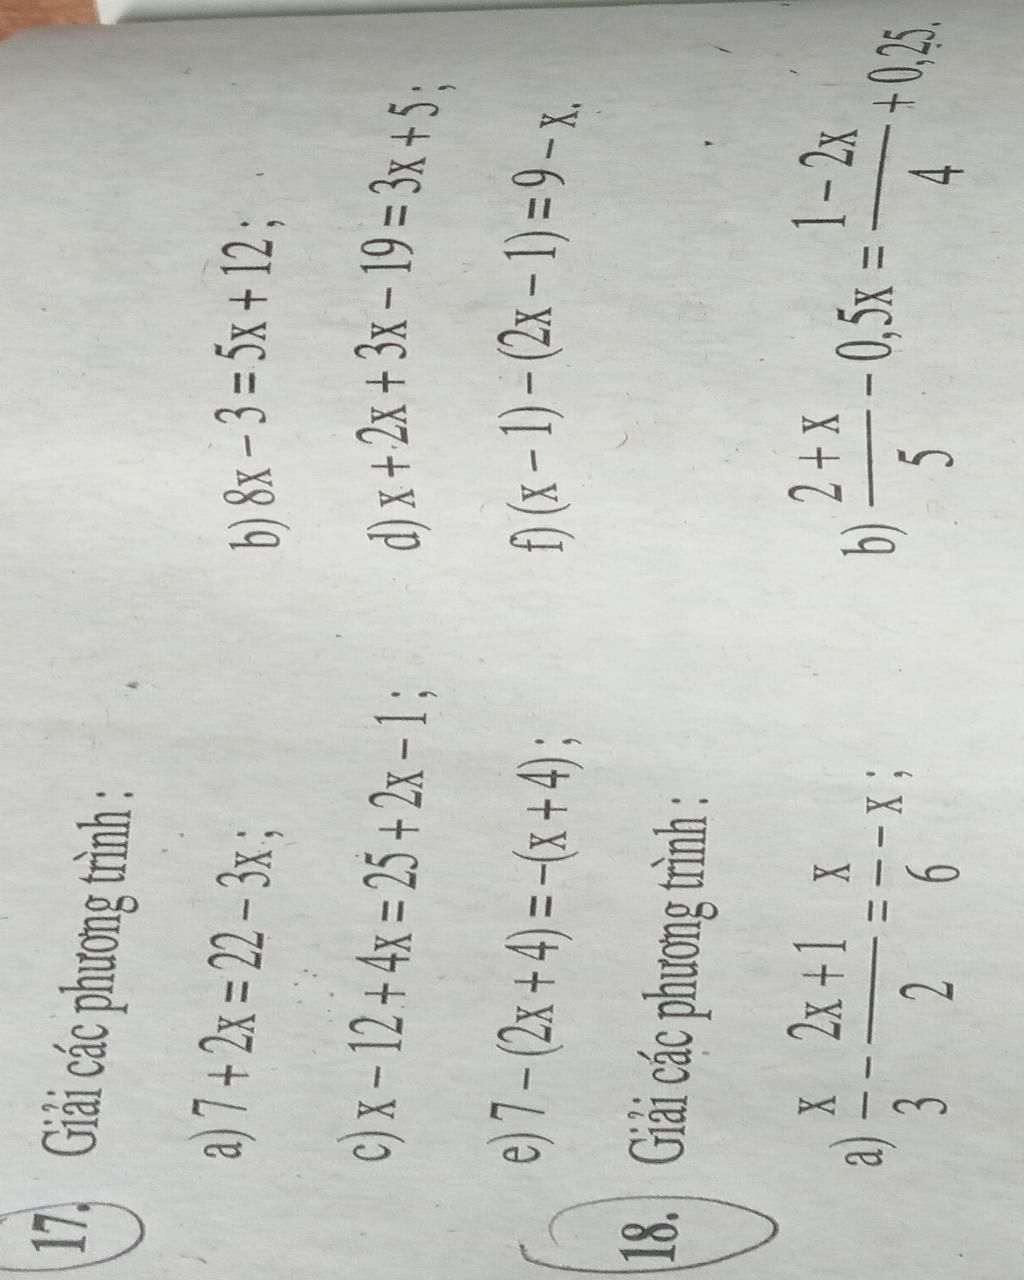 17. Giải các phương trình :
a) 7 + 2x = 22 – 3x ; b) 8x – 3 = 5x + 12 ;
c) x – 12 + 4x = 25 + 2x – 1 ; d) x + 2x + 3x – 19 = 3x + 5 ;
e) 7 – (2x + 4) = –(x + 4) ; f) (x – 1) – (2x – 1) = 9 – x.
18. Giải các phương trình :
a) x/3 – (2x + 1)/2 = x/6 – x ; b) (2 + x)/5 – 0,5x = (1 – 2x)/4 + 0,25.